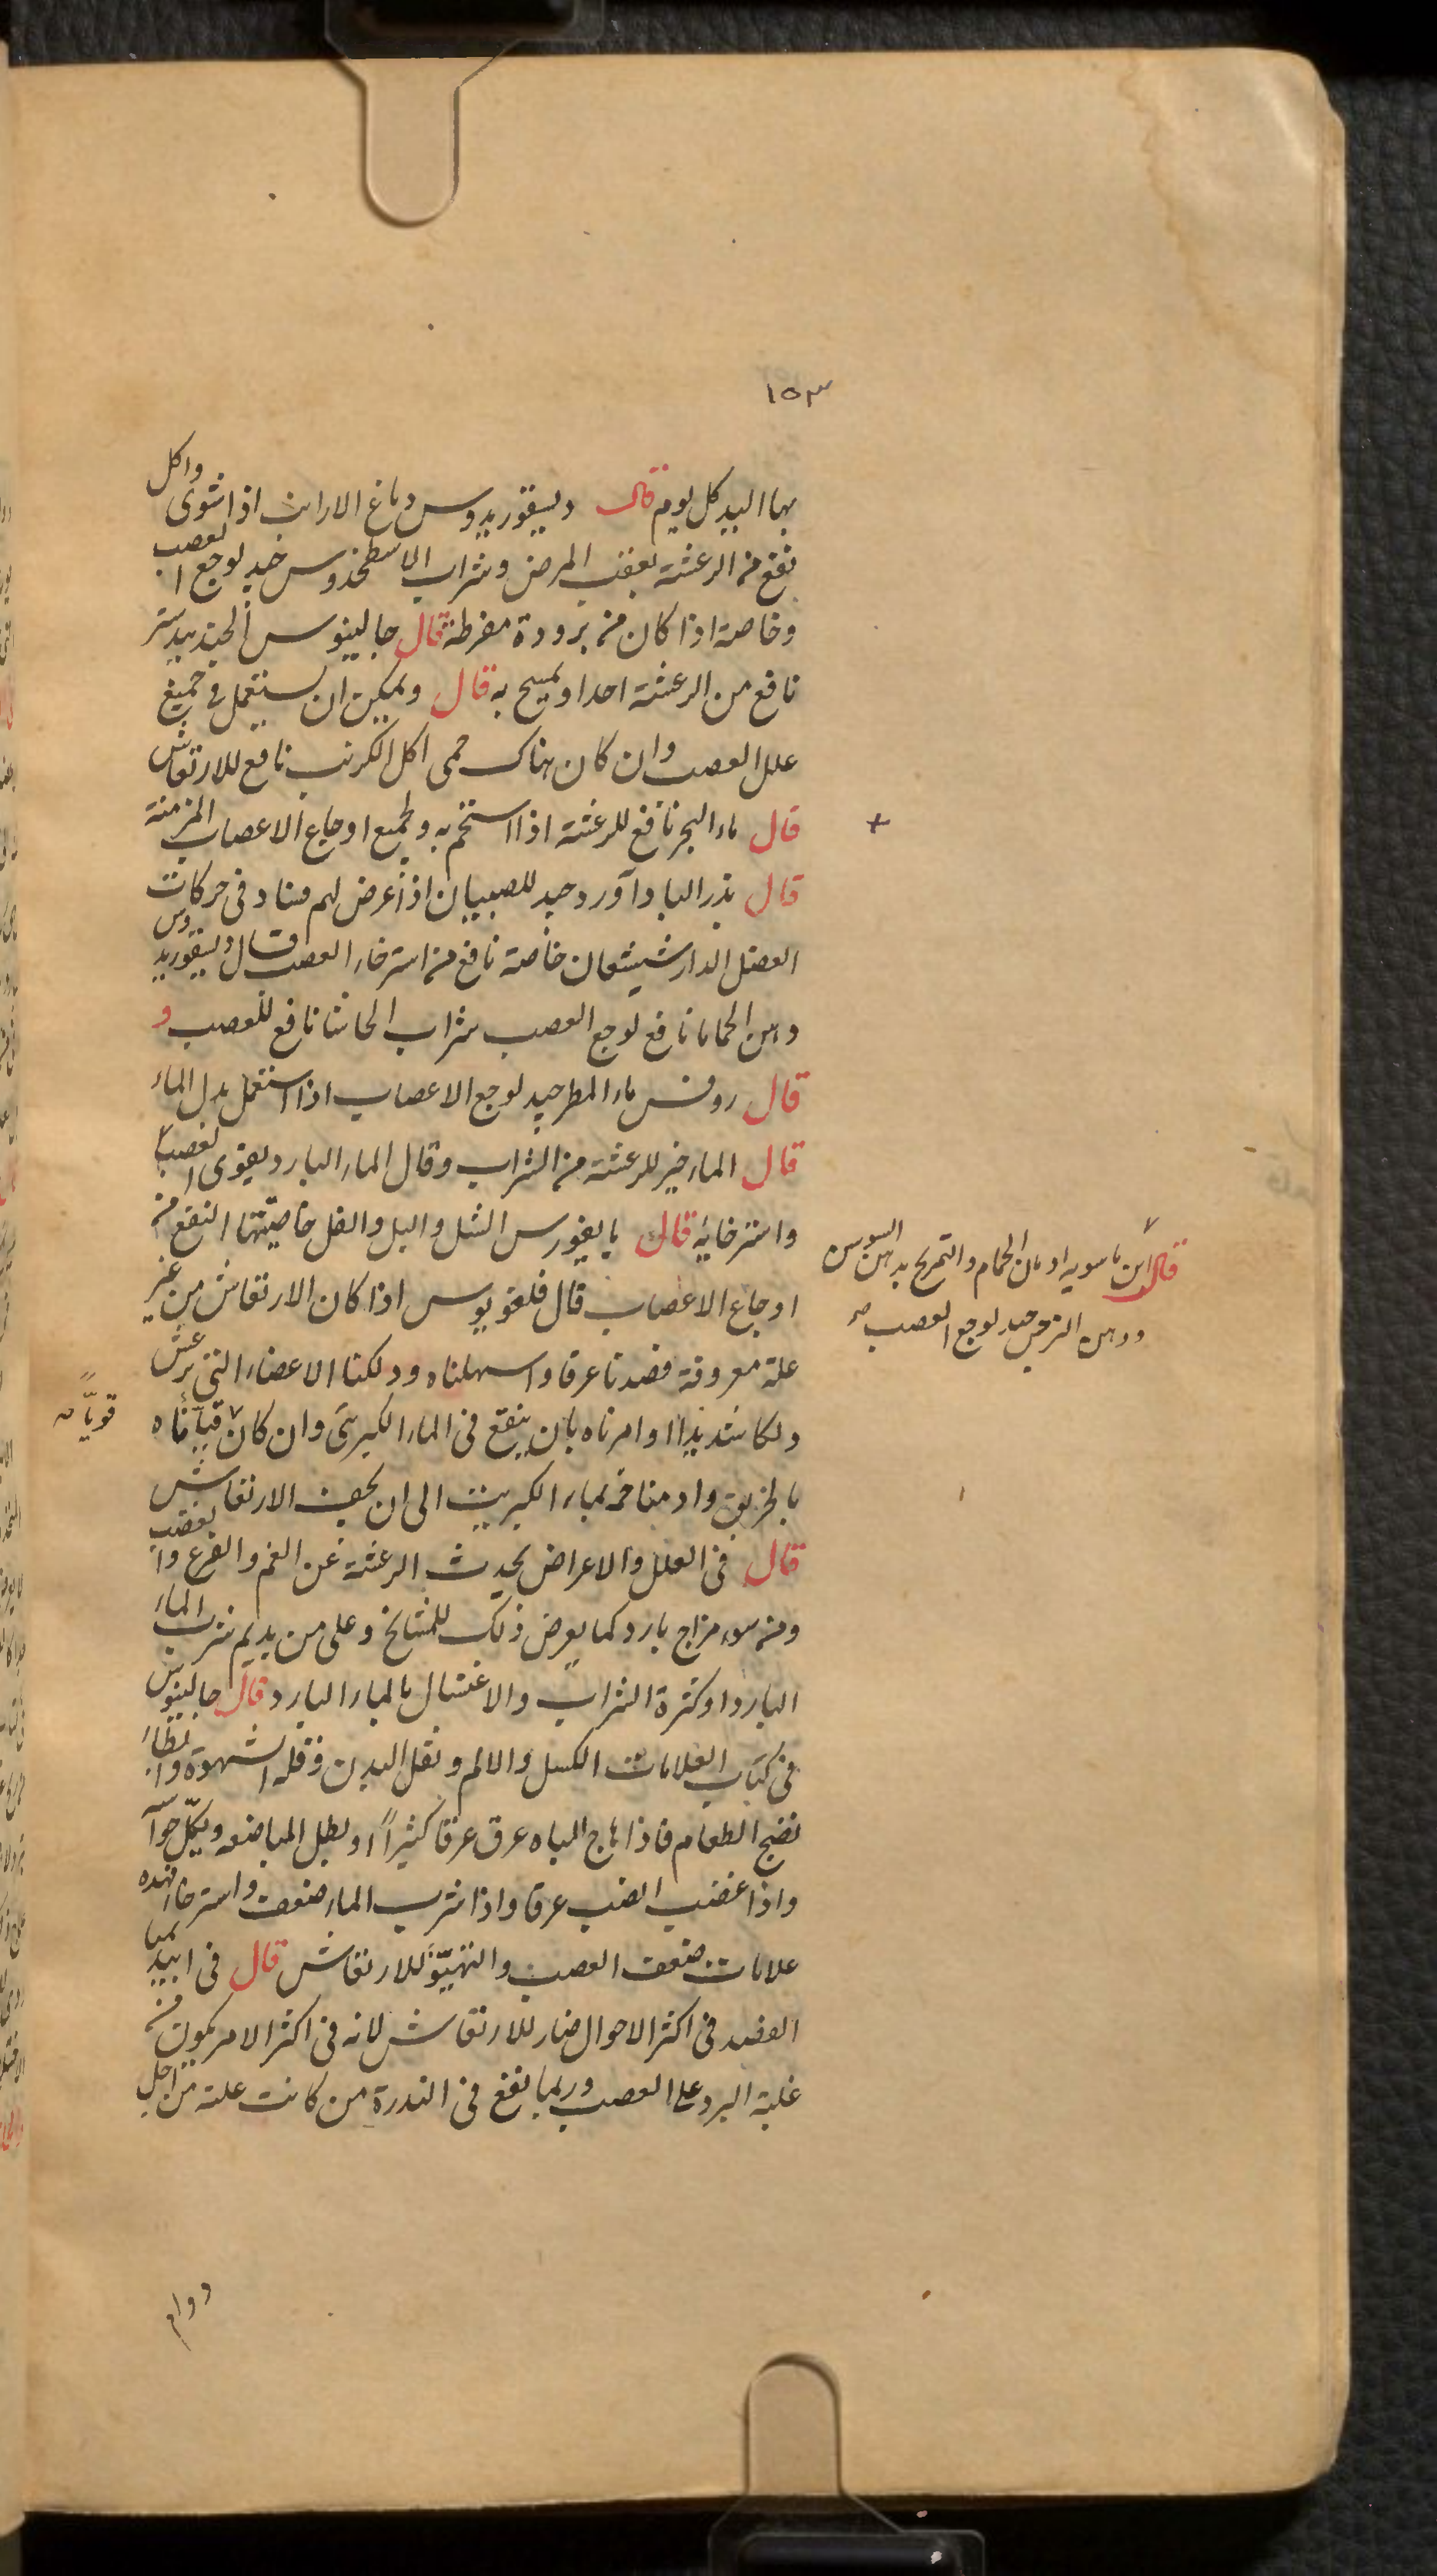 ١٥٣
بها اليد كل يوم قال ديسقوريدوس دماغ الارانب اذا شوى واكل
نفع من الرعشة بعقب المرض وشراب الاسطخدوس جيد لوجع العصب
وخاصة اذا كان من برودة مفرطة قال جالينوس الجندبيدستر
نافع من الرعشة احدا ويمسح به قال ويمكن ان يستعمل فى جميع
علل العصب وان كان هناك حمى اكل الكرنب نافع للارتعاش
قال ماء البحر نافع للرعشة اذا استحم به ولجميع اوجاع الاعصاب المزمنة
قال بذر الباداورد جيد للصبيان اذا عرض لهم فساد فى حركات
العضل الدارشيشعان خاصة نافع من استرخاء العصب قال ديسقوريدوس
دهن الحماما نافع لوجع العصب شراب الحاشا نافع للعصب و
قال روفس ماء المطر جيد لوجع الاعصاب اذا استعمل بدل الماء
قال الماء خير للرعشة من الشراب وقال الماء البارد يقوى العصب
واسترخائه قال بالغورس الشل والبل والفل خاصيتها النفع من
اوجاع الاعصاب قال فلغويوس اذا كان الارتعاش من غير
علة معروفة فصدنا عرقا واسهلناه ودلكنا الاعضاء التى ترعش
دلكا شديدا وامرناه بان ينقع فى الماء الكبريتى وان كان قيأناه
بالخربق وادمناخه بماء الكبريت الى ان يجف الارتعاش
قال فى العلل والاعراض يحدث الرعشة عن الغم والفزع والغضب
ومن سوء مزاج بارد كما يعرض ذلك للمشايخ وعلى من يديم شرب الماء
البارد او كثرة الشراب والاغتسال بالماء البارد قال جالينوس
فى كتاب العلامات الكسل والالم وثقل البدن وقلة الشهوة وابطاء
نضج الطعام فاذا هاج الباه عرق عرقا كثيرا او بطل المباضعه ويكل حواسه
واذا غضب انصب عرقا واذا شرب الماء ضعف واسترخا فهذه
علامات ضعف العصب والتهيؤ للارتعاش قال فى ابيديميا
الفصد فى اكثر الاحوال ضار للارتعاش لانه فى اكثر الامر يكون من
غلبة البرد على العصب وربما نفع فى الندرة من كانت علته من اجل
دوام
قال ابن ماسويه ادمان الحمام والتمريخ بدهن السوسن
ودهن النرجس جيد لوجع العصب صح
قويا صح